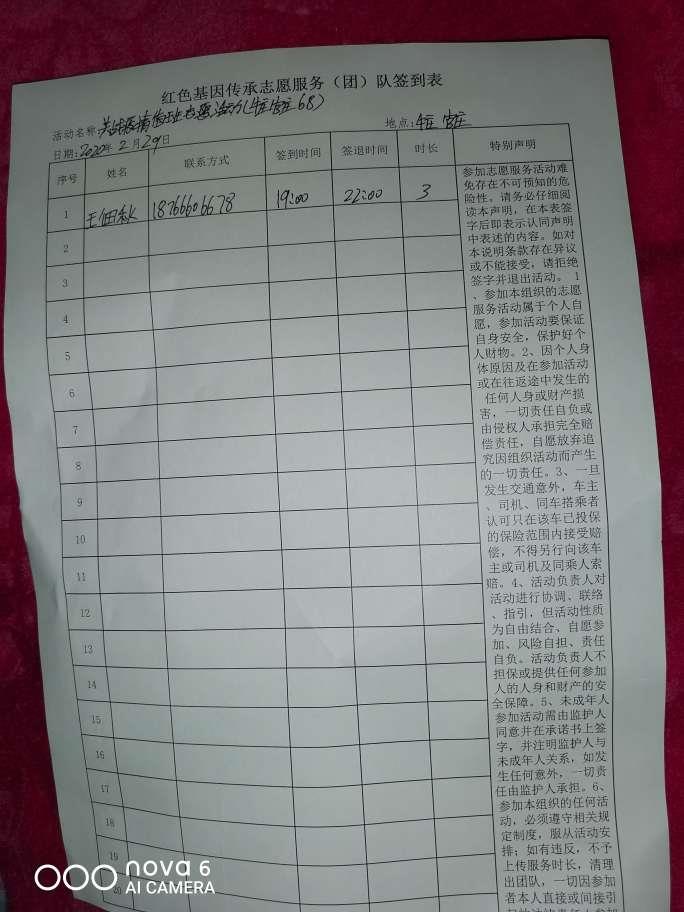 红色基因传承志愿服务（团）队签到表
活动名称 抗击疫情值班志愿活动（牟官庄68）
地点：牟官庄
日期：2020年2月29日
序号 姓名 联系方式 签到时间 签退时间 时长 特别声明
1 王佃秋 18766606678 19:00 22:00 3
2
3
4
5
6
7
8
9
10
11
12
13
14
15
16
17
18
19
20
参加志愿服务活动难
免存在不可预知的危
险性。请务必仔细阅
读本声明，在本表签
字后即表示认同声明
中表述的内容。如对
本说明条款存在异议
或不能接受，请拒绝
签字并退出活动。1
、参加本组织的志愿
服务活动属于个人自
愿，参加活动要保证
自身安全，保护好个
人财物。2、因个人身
体原因及在参加活动
或在往返途中发生的
任何人身或财产损
害，一切责任自负或
由侵权人承担完全赔
偿责任，自愿放弃追
究因组织活动而产生
的一切责任。3、一旦
发生交通意外，车主
、司机、同车搭乘者
认可只在该车已投保
的保险范围内接受赔
偿，不得另行向该车
主或司机及同乘人索
赔。4、活动负责人对
活动进行协调、联络
、指引，但活动性质
为自由结合、自愿参
加、风险自担、责任
自负。活动负责人不
担保或提供任何参加
人的人身和财产的安
全保障。5、未成年人
参加活动需由监护人
同意并在承诺书上签
字，并注明监护人与
未成年人关系，如发
生任何意外，一切责
任由监护人承担。6、
参加本组织的任何活
动，必须遵守相关规
定制度，服从活动安
排；如有违反，不予
上传服务时长，清理
出团队，一切因参加
者本人直接或间接引
nova 6
AI CAMERA